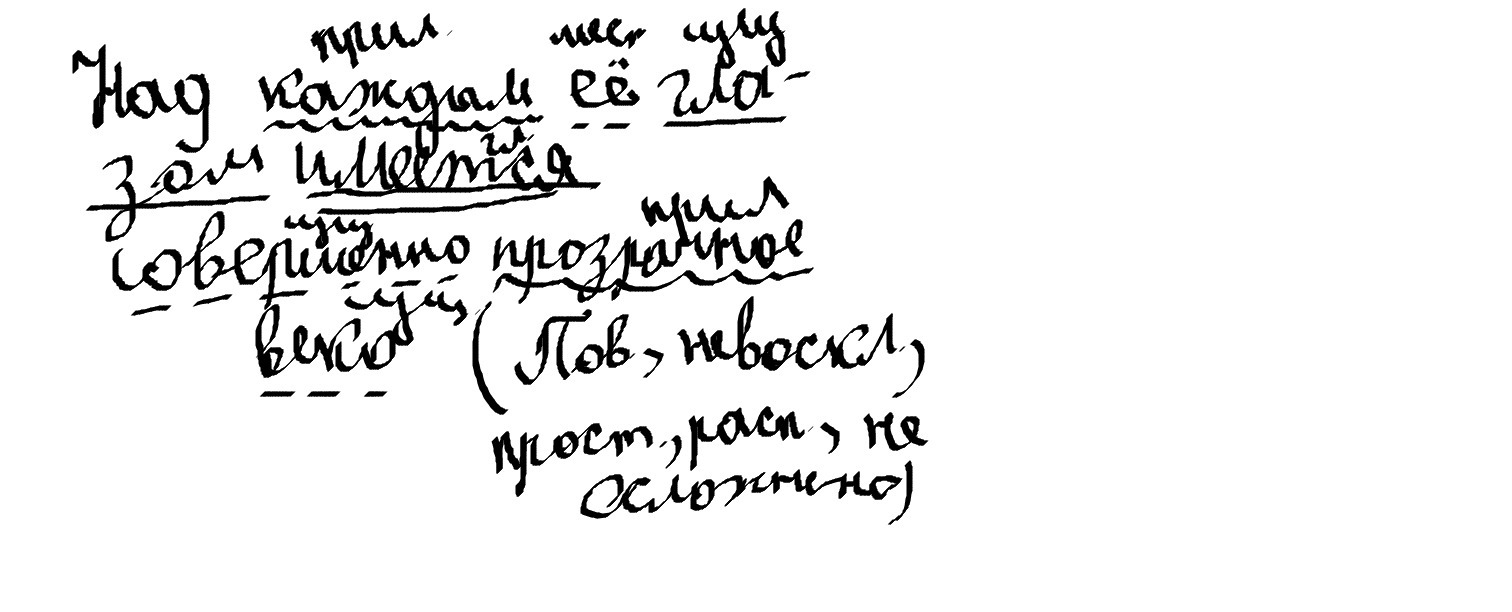 прил мест сущ
Над каждым её гла-
гл
зом имеется
сущ прил
совершенно прозрачное
сущ
веко (Пов, невоскл,
прост, расп, не
осложнено)